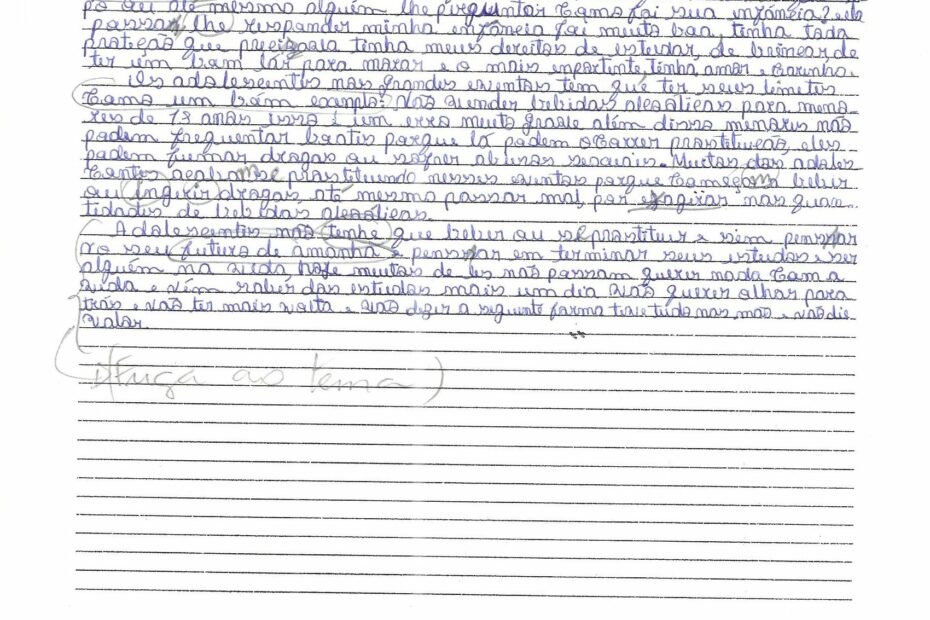 po ou até mesmo alguém lhe perguntar como foi sua infância? ele
possar lhe responder minha infância foi muito boa, tinha toda
proteção que precisava tinha meus direitos de estudar, de brincar, de
ter um bom lár para morar e o mais inportinte, tinha amor e carinho.
Os adolescentes nos grandes eventos tem que ter seus limites
Como um bom exemplo: Não vender bebidas alcoólicas para meno
res de 18 anos isso é um erro muito grave além disso menores não
podem frequentar bortis porque lá podem ocorrer prostituição, eles
podem fumar drogas ou sofrer abusos sexuais. Muitos dos adoles
centes acabam se prostituindo nesses eventos porque começam beber
ou ingerir drogas, até mesmo passar mal, por exagirar nas quan
tidades de bebidas alcoólicas.
Adolescentes não tenhe que beber ou se prostituir e sim penssar
no seu futuro de amanhã e penssar em terminar seus estudos e ser
alguém na vida, hoje muitos de les não possam querer nada com a
vida e ném saber dos estudos mais um dia vão querer olhar para
trás e não ter mais volta e vão dizer a seguinte forma tive tudo nas mão e não die
valor
(Fuga ao tema)